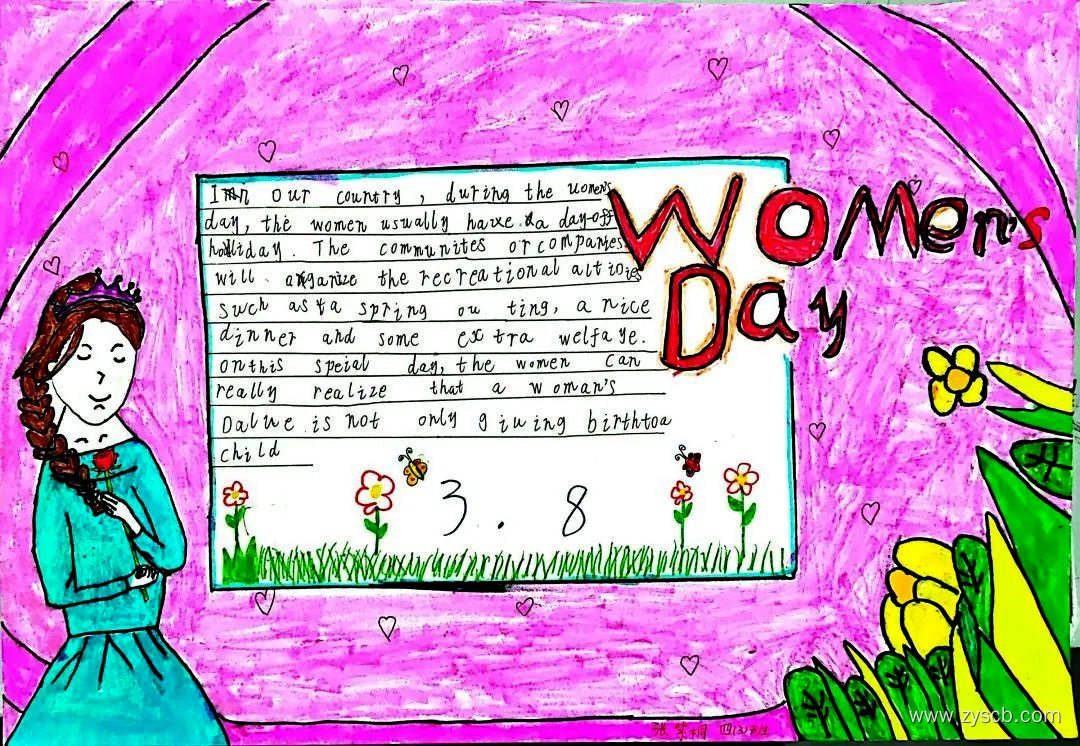 In our country, during the women's
day, the women usually have a day-off
holiday. The communites or companies
will organize the recreational altivies
such as a spring ou ting, a nice
dinner and some extra welfaye.
on this speial day, the women can
really realize that a woman's
Dalue is not only giuing birthtoa
child
Women's
Day
3.8
四(2)班
www.zyscb.com